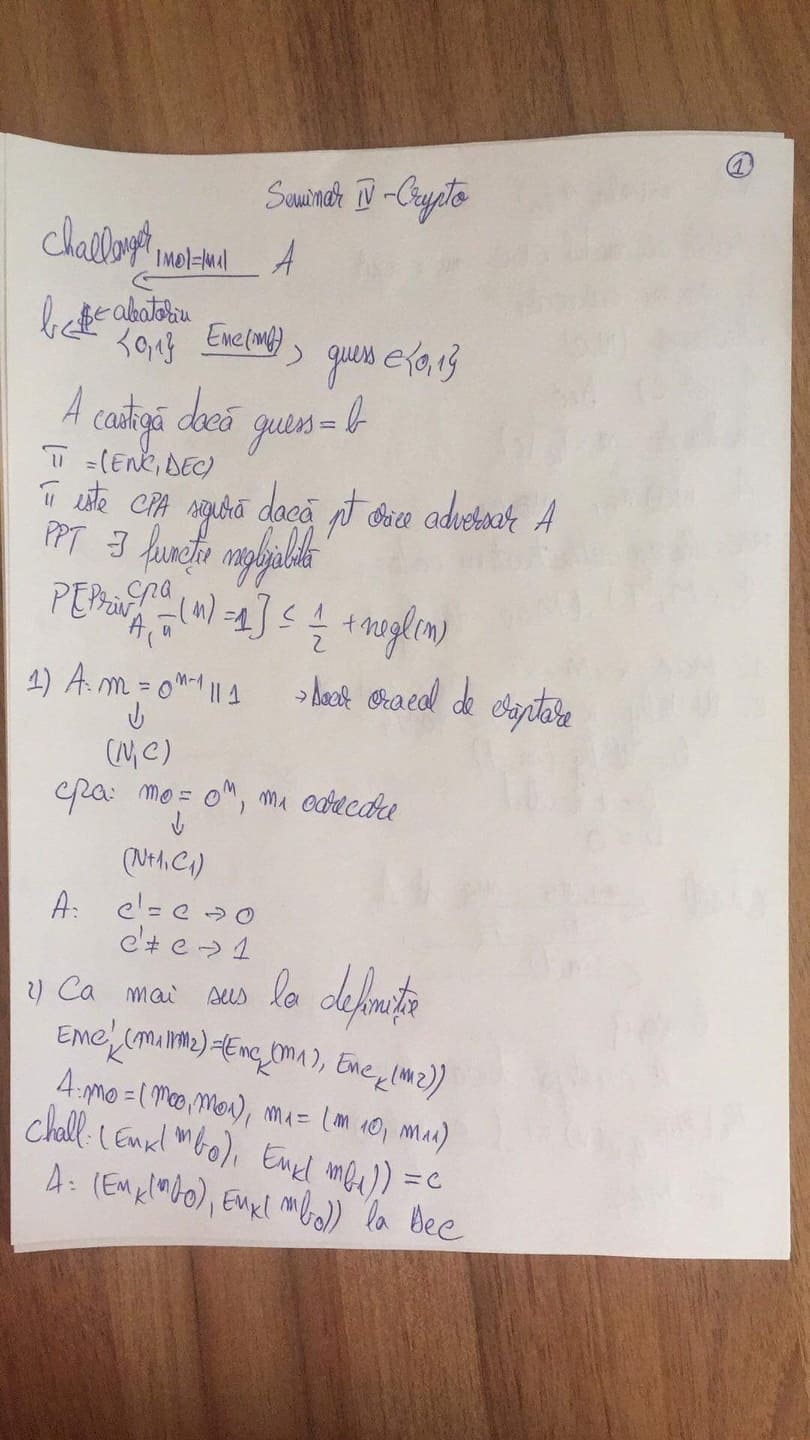 ①
Seminar IV - Crypto
Challenger |m0|=|m1| A
b ← $ ← aleatoriu
{0,1} Enc(mb) guess ∈ {0,1}
A castigă dacă guess = b
Π = (ENC, DEC)
Π este CPA sigură dacă pt orice adversar A
PPT ∃ funcție neglijabilă
P[Priv cpa A, Π (n) = 1] ≤ 1/2 + negl(n)
1) A: m = 0^{n-1} || 1 → Doar oracol de criptare
↓
(N, C)
cpa: m0 = 0^n, m1 oarecare
↓
(N+1, C1)
A: c' = c → 0
c' ≠ c → 1
2) Ca mai sus la definiție
Enc'_K (m1||m2) = (Enc_K (m1), Enc_K (m2))
A: m0 = (m00, m01), m1 = (m10, m11)
Chall: (En_K( mb0), En_K( mb1)) = c
A: (En_K(mb0), En_K( mb0)) la Dec